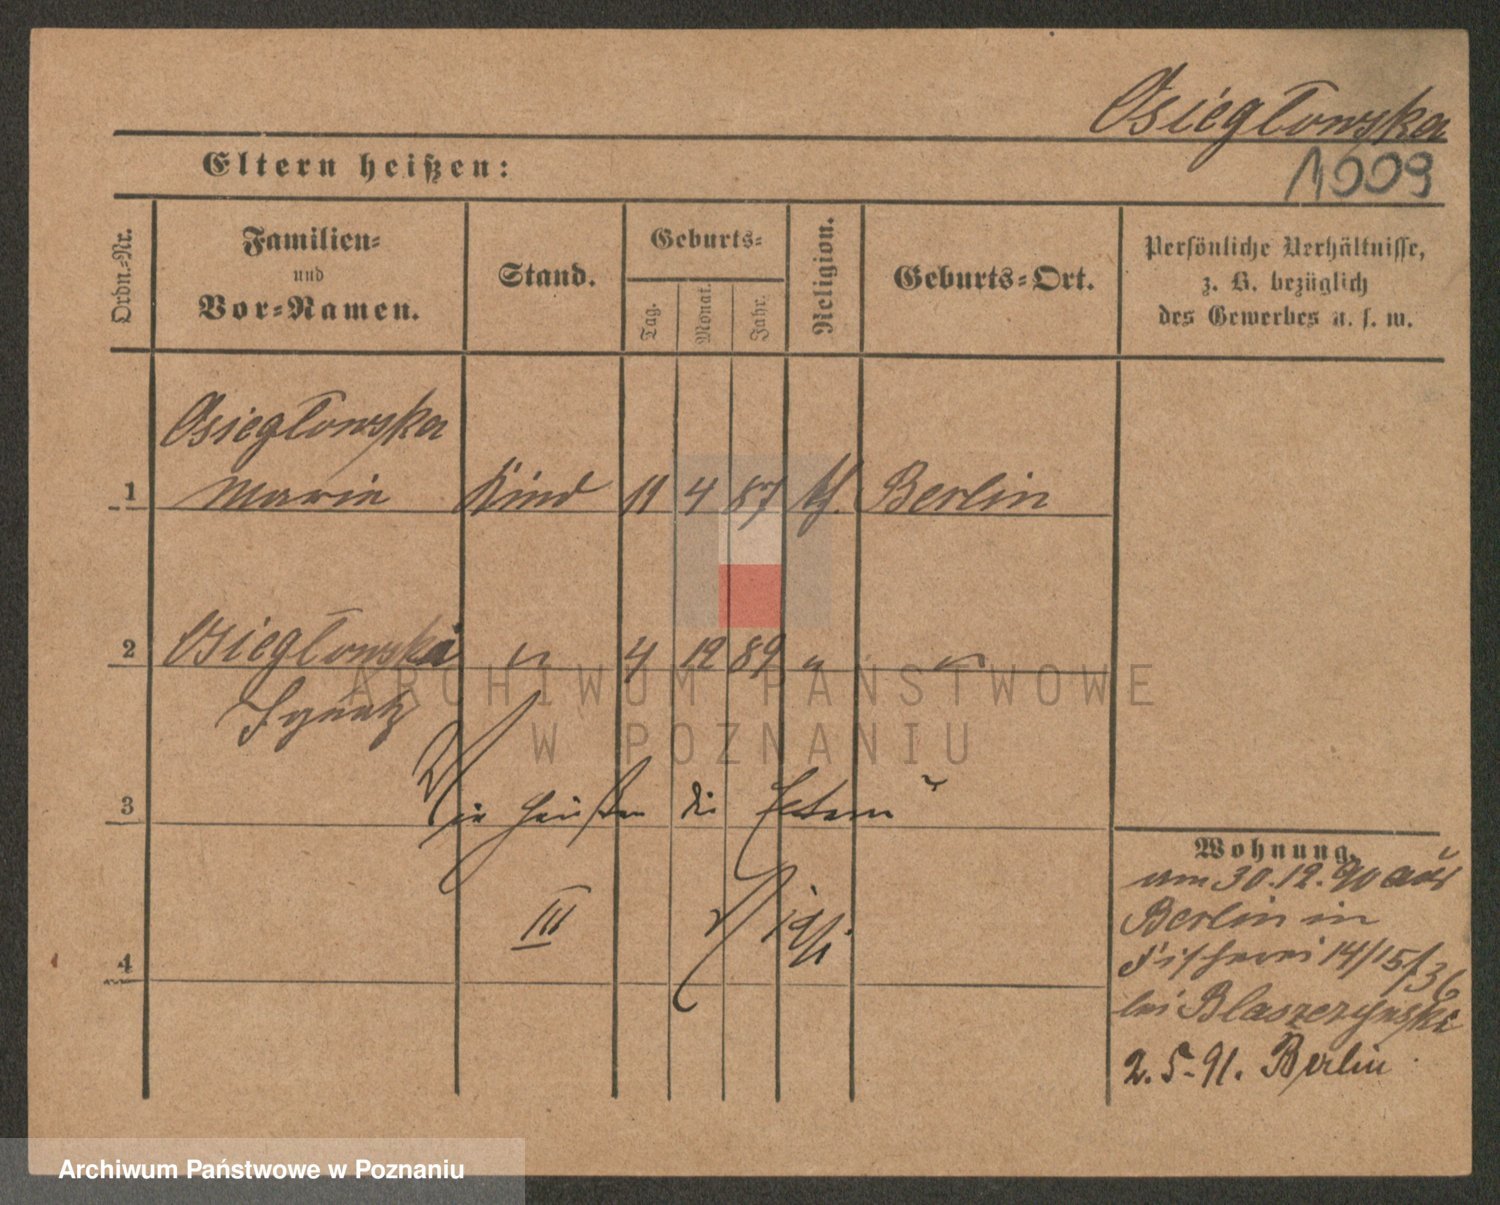 Osiegłowska
Eltern heißen:
1009
Ordn.-Nr.
Familien-
und
Vor-Namen.
Stand.
Geburts-
Tag.
Monat.
Jahr.
Religion.
Geburts-Ort.
Persönliche Verhältnisse,
z. B. bezüglich
des Gewerbes u. s. w.
Osiegłowska
1 Marie Kind 11 4 87 kf. Berlin
2 Osiegłowski " 4 12 89 " "
Ignatz
3 Wie heißen die Eltern
III 19/1
4
Wohnung.
am 30.12.90 aus
Berlin in
Fischerei 14/15/36
bei Blaszczynski
2.5-91. Berlin
ARCHIWUM PAŃSTWOWE
W POZNANIU
Archiwum Państwowe w Poznaniu